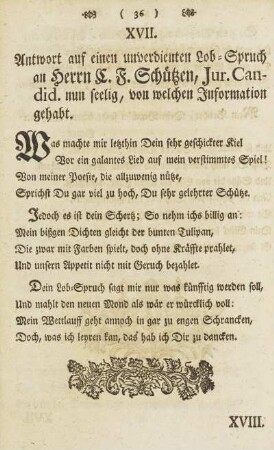 ( 36 )
XVII.
Antwort auf einen unverdienten Lob-Spruch
an Herrn C. F. Schützen, Jur. Can-
did. nun seelig, von welchen Information
gehabt.
Was machte mir letzthin Dein sehr geschickter Kiel
Vor ein galantes Lied auf mein verstimmtes Spiel!
Von meiner Poesie, die allzuwenig nütze,
Sprichst Du gar viel zu hoch, Du sehr gelehrter Schütze.
Jedoch es ist dein Schertz; So nehm ichs billig an:
Mein bißgen Dichten gleicht der bunten Tulipan,
Die zwar mit Farben spielt, doch ohne Kräffte prahlet,
Und unsern Appetit nicht mit Geruch bezahlet.
Dein Lob-Spruch sagt mir nur was künfftig werden soll,
Und mahlt den neuen Mond als wär er würcklich voll:
Mein Wettlauff geht annoch in gar zu engen Schrancken,
Doch, was ich leyren kan, das hab ich Dir zu dancken.
XVIII.